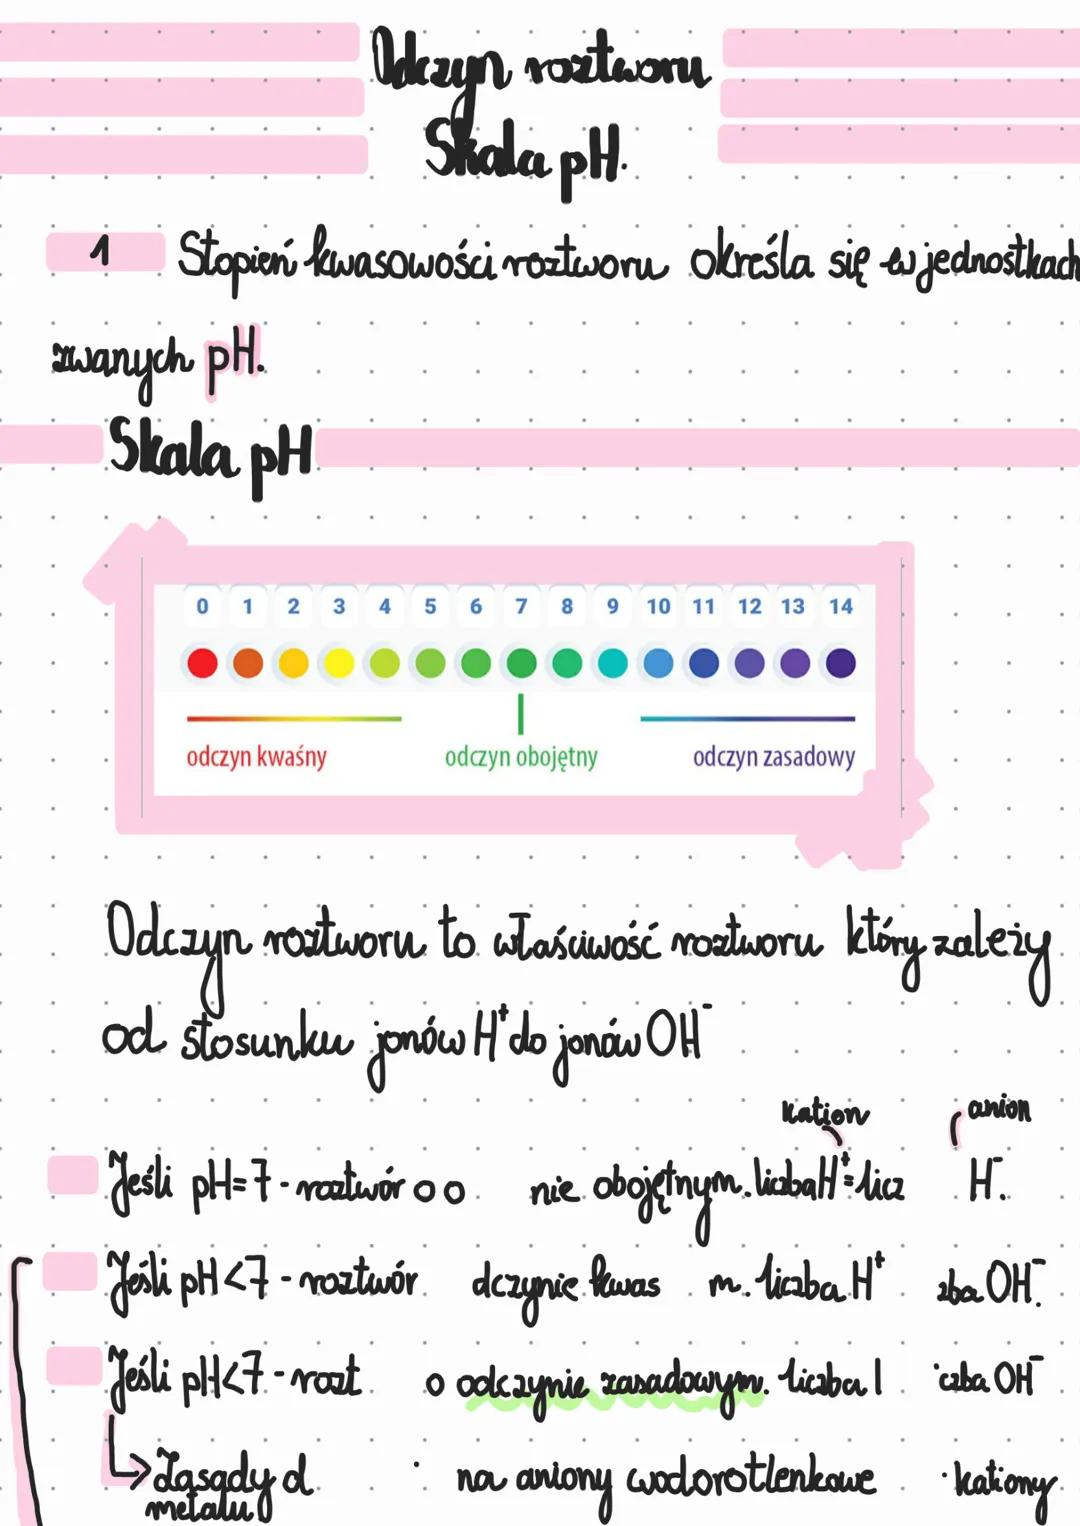 Odczyn roztworu
Skala pH.
1 Stopień kwasowości roztworu określa się w jednostkach
zwanych pH.
Skala pH
0 1 2 3 4 5 6 7 8 9 10 11 12 13 14
odczyn kwaśny odczyn obojętny odczyn zasadowy
Odczyn roztworu to właściwość roztworu który zależy
od stosunku jonów H⁺ do jonów OH⁻
kation anion
Jeśli pH=7 - roztwór o o nie obojętnym. liczba H⁺ = licz H⁻.
Jeśli pH<7 - roztwór dczynie kwas m. liczba H⁺ zba OH⁻.
Jeśli pH<7 - rozt o odczynie zasadowym. liczba czba OH⁻
↳ Zasady d na aniony wodorotlenkowe kationy
metalu